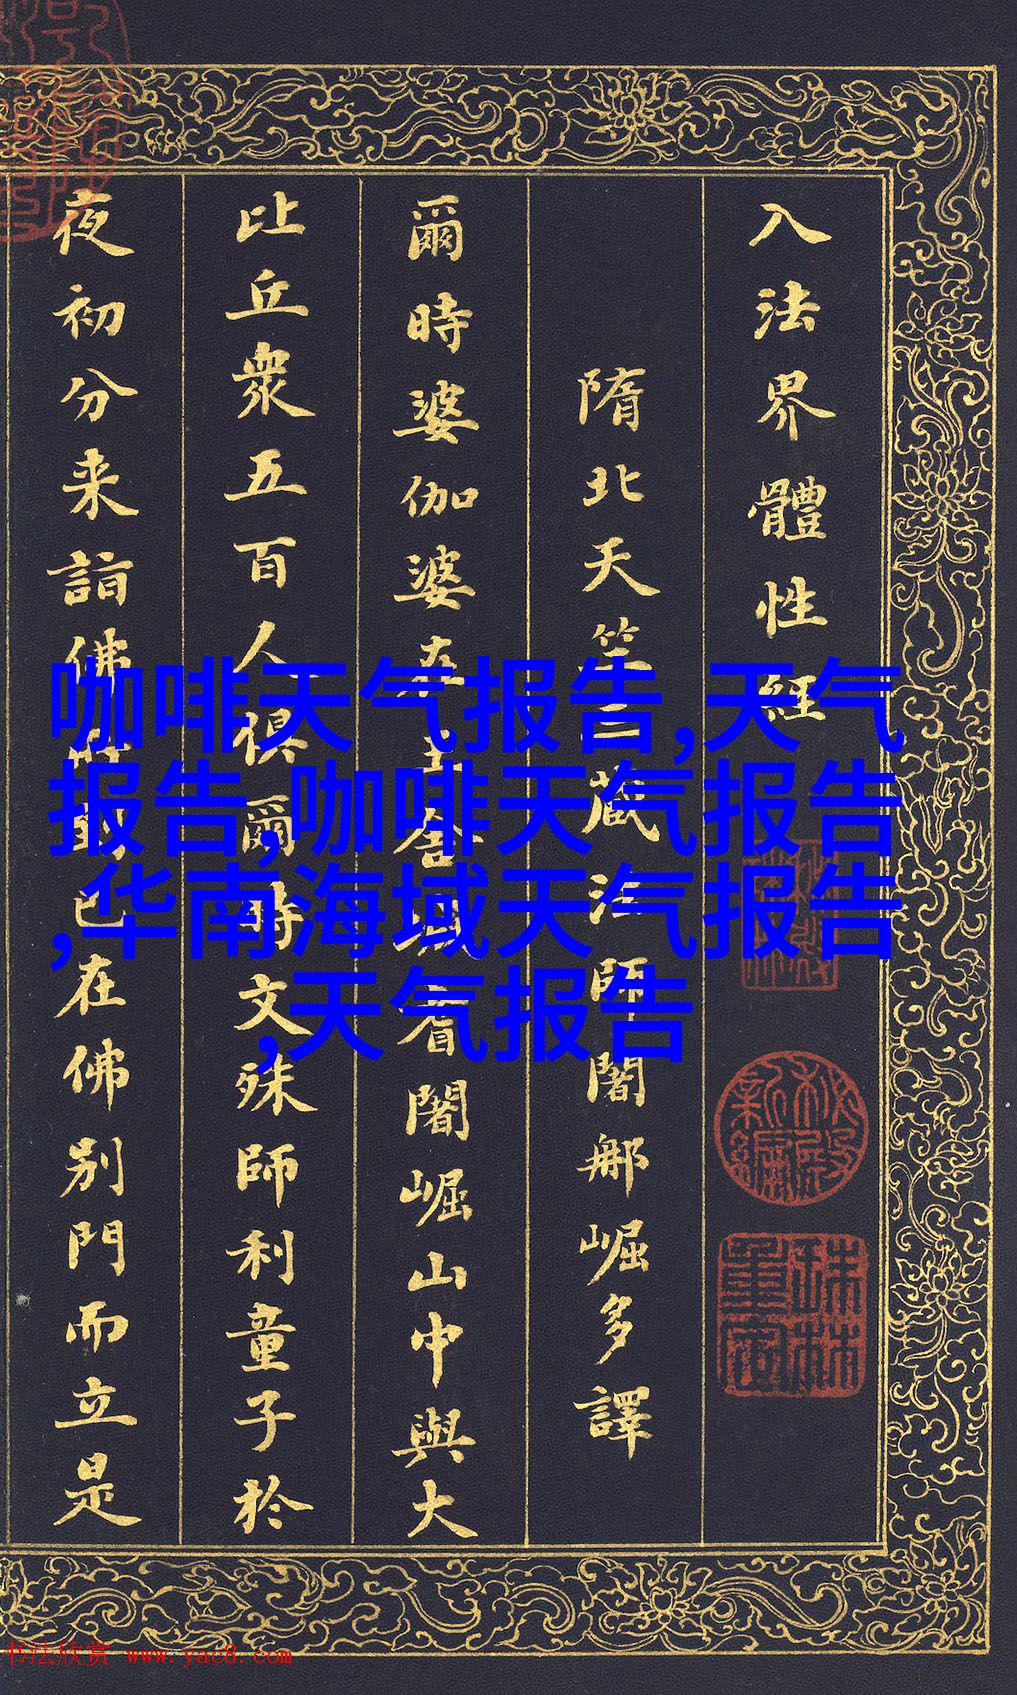 入法界體性經
隋北天竺三藏法師闍那崛多譯
爾時婆伽婆在王舍城耆闍崛山中與大
比丘衆五百人俱爾時文殊師利童子於
夜初分来詣佛所到已在佛別門而立是
咖啡天气报告,天气
报告,咖啡天气报告
,华南海域天气报告
,天气报告
秘殿新編
珠林重定
书法欣赏 www.yac8.com